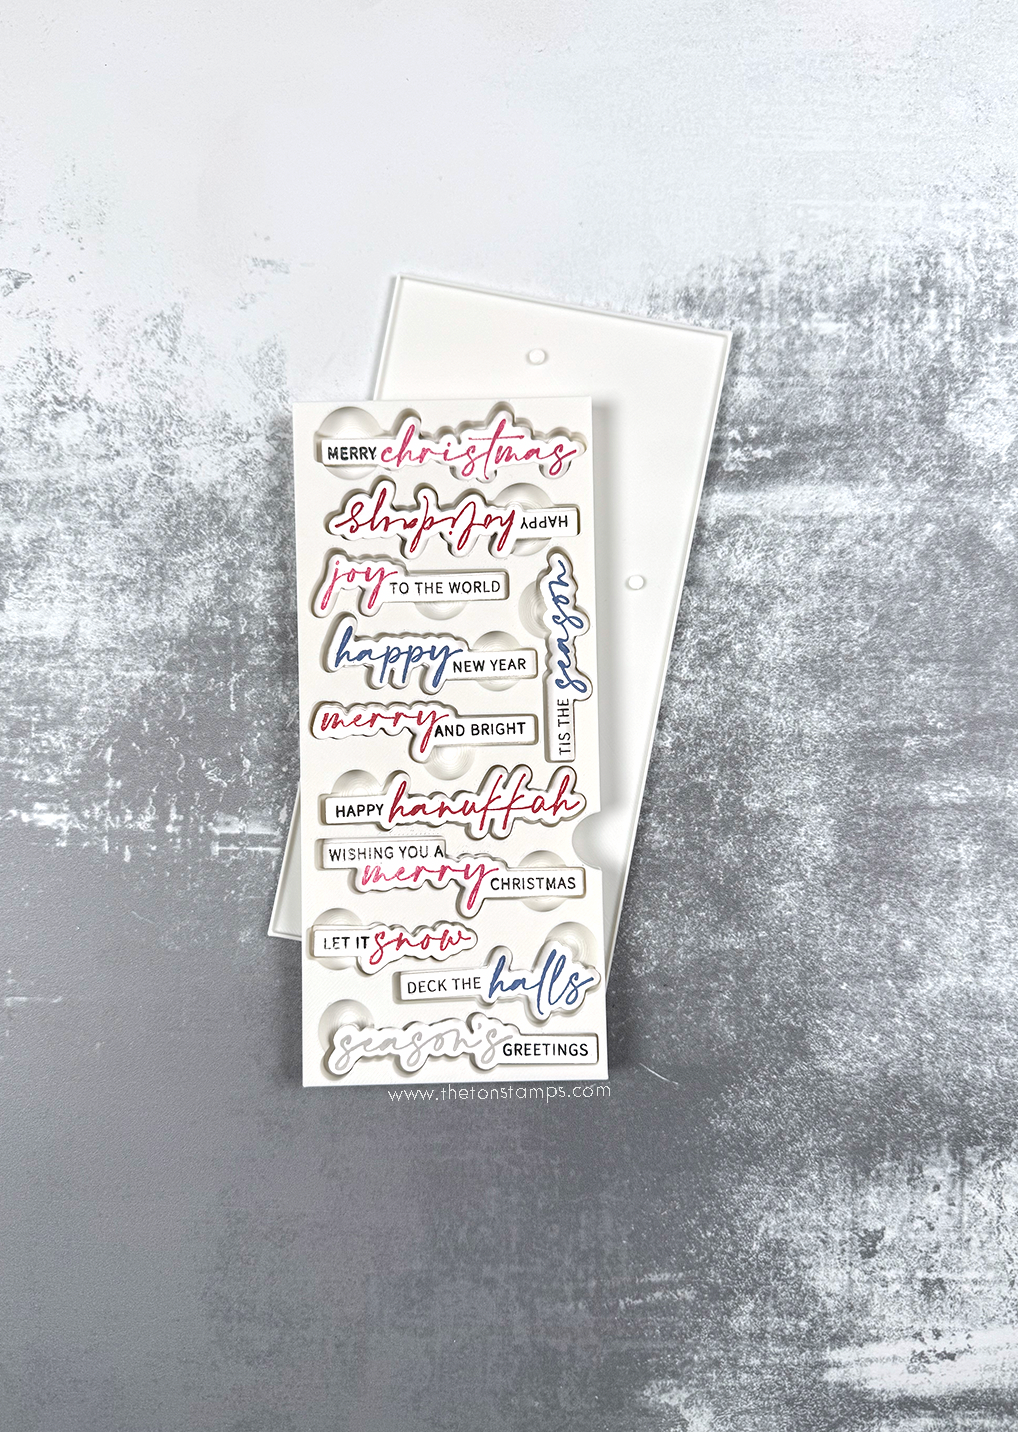 MERRY christmas
HAPPY holidays
joy TO THE WORLD
TIS THE season
happy NEW YEAR
merry AND BRIGHT
HAPPY hanukkah
WISHING YOU A
merry CHRISTMAS
LET IT snow
DECK THE halls
season's GREETINGS
www.thetonstamps.com